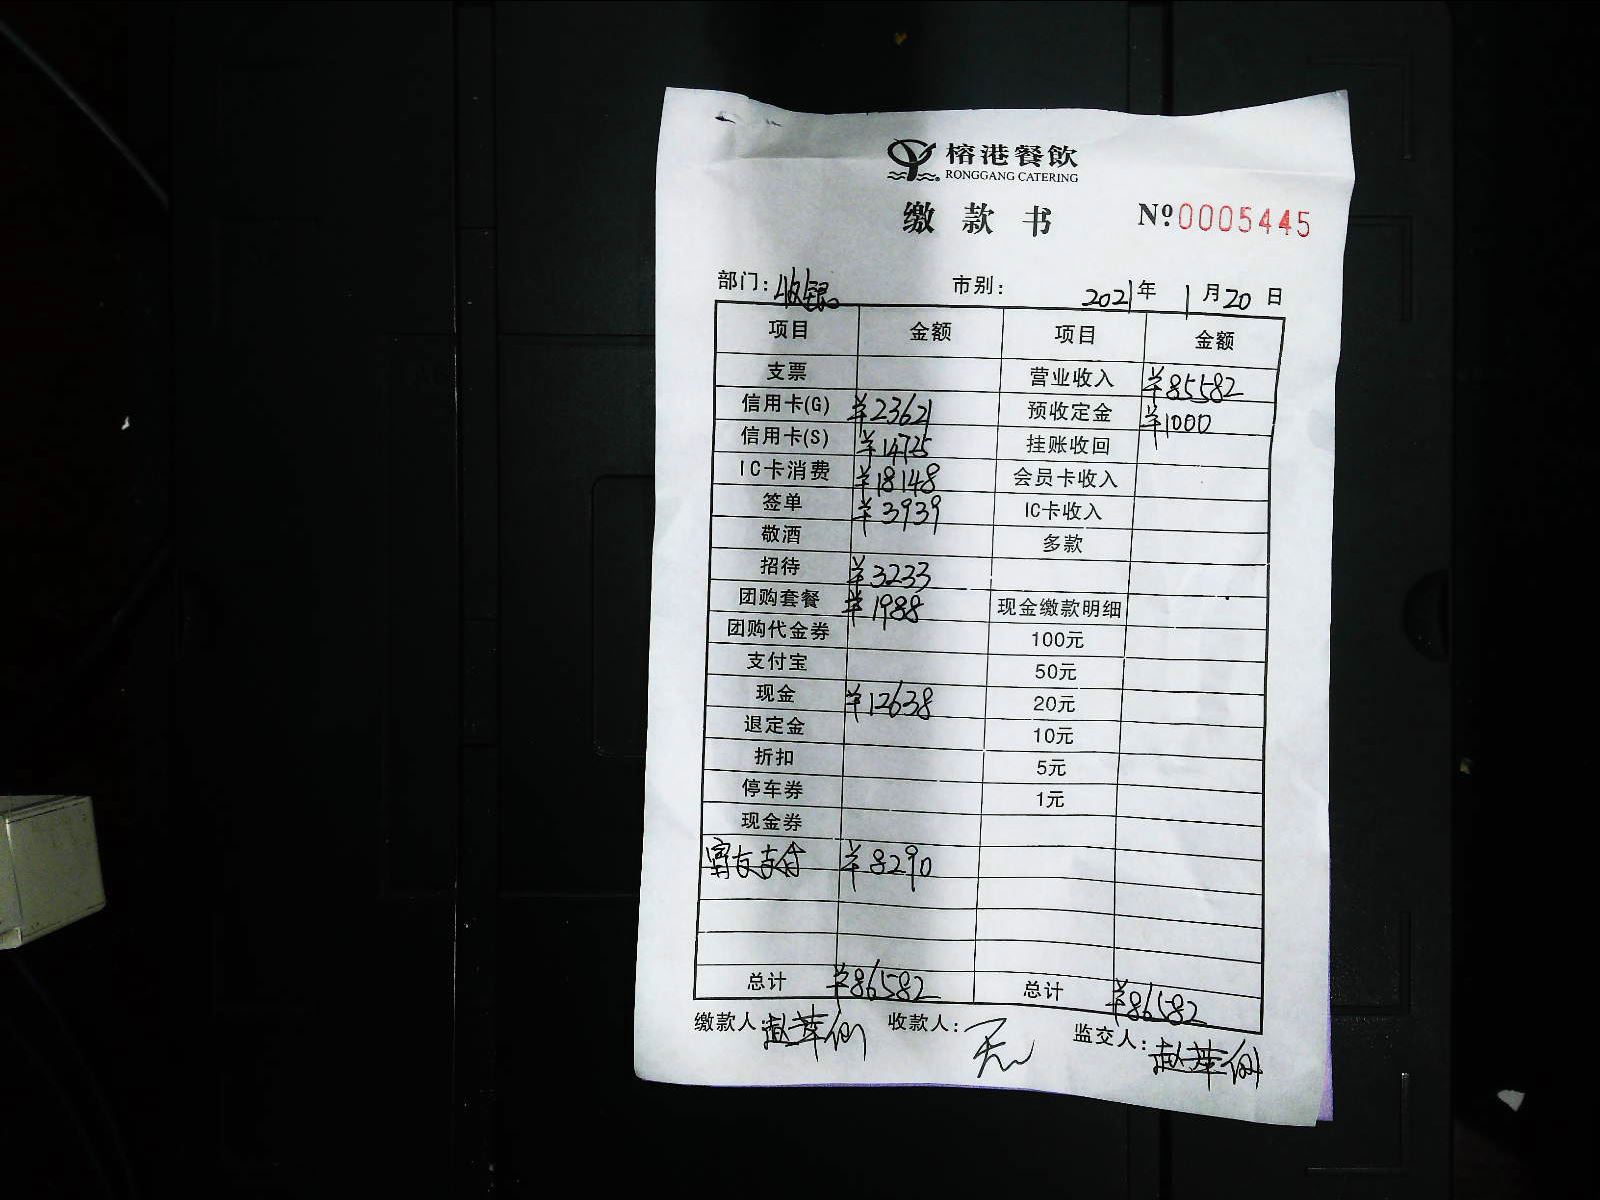 榕港餐飲
RONGGANG CATERING
缴款书 №0005445
部门：收银 市别： 2021年 1月20日
项目 金额 项目 金额
支票 营业收入 ¥85582
信用卡(G) ¥23621 预收定金 ¥1000
信用卡(S) ¥14725 挂账收回
IC卡消费 ¥18148 会员卡收入
签单 ¥3939 IC卡收入
敬酒 多款
招待 ¥3233
团购套餐 ¥1988 现金缴款明细
团购代金券 100元
支付宝 50元
现金 ¥12638 20元
退定金 10元
折扣 5元
停车券 1元
现金券
支付 ¥8290
总计 ¥86582 总计 ¥86582
缴款人： 收款人： 监交人：